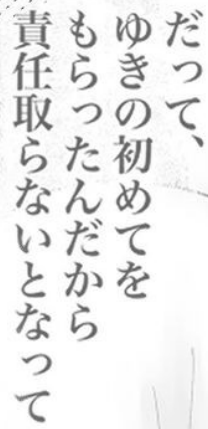 だって、
ゆきの初めてを
もらったんだから
責任取らないとなって